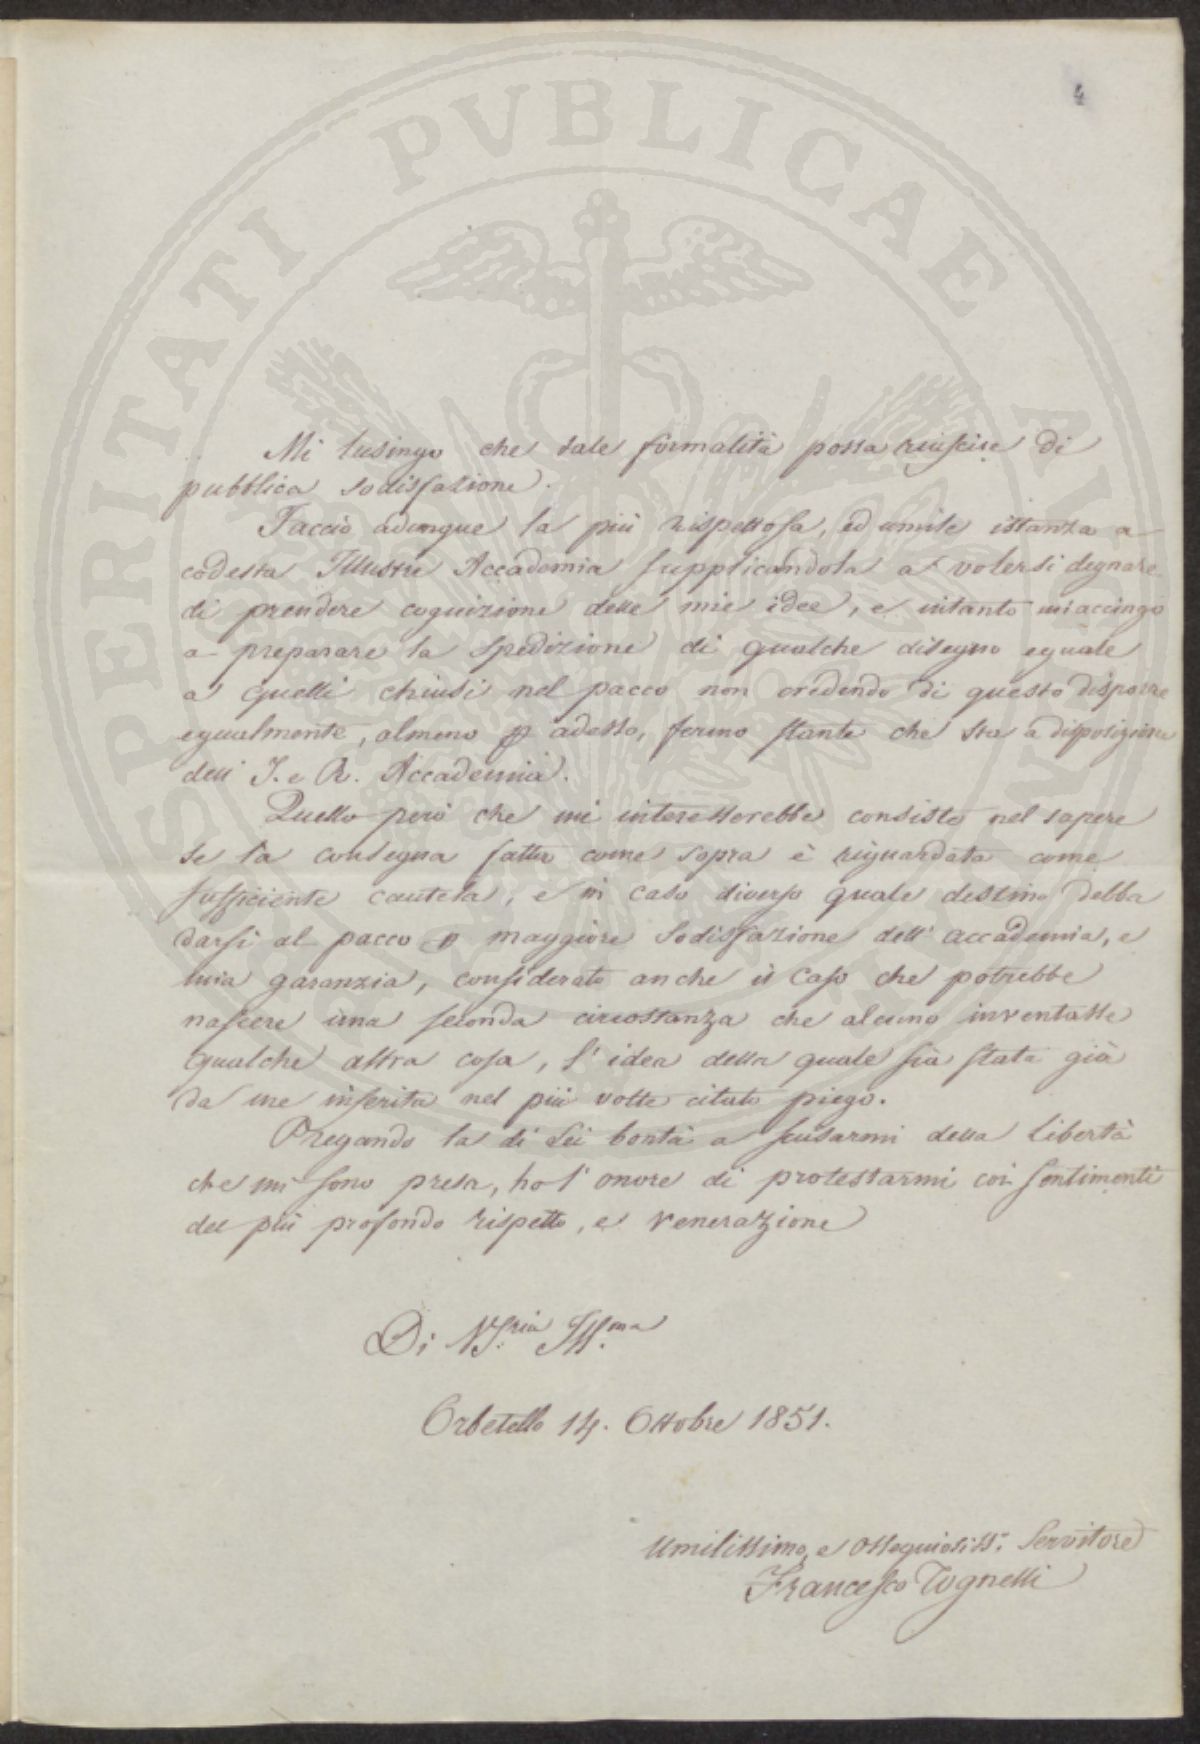 4
PROSPERITATI PVBLICAE AVGENDAE
Mi lusingo che tale formalità possa riuscire di
pubblica sodisfazione.
Faccio adunque la più rispettosa, ed umile istanza a
codesta Illustre Accademia supplicandola a volersi degnare
di prendere cognizione delle mie idee, e intanto mi accingo
a preparare la spedizione di qualche disegno eguale
a quelli chiusi nel pacco non credendo di questo disporre
egualmente, almeno p adesso, fermo stante che sta a disposizione
dell' I. e R. Accademia.
Quello però che mi interesserebbe consiste nel sapere
se la consegna fatta come sopra è riguardata come
sufficiente cautela, e in caso diverso quale destino debba
darsi al pacco p maggiore sodisfazione dell' accademia, e
mia garanzia, considerato anche il caso che potrebbe
nascere una seconda circostanza che alcuno inventasse
qualche altra cosa, l' idea della quale sia stata già
da me inserita nel più volte citato piego.
Pregando la di Lei bontà a scusarmi della libertà
che mi sono presa, ho l' onore di protestarmi coi sentimenti
del più profondo rispetto, e venerazione
Di VS.ria Ill.ma
Orbetello 14. Ottobre 1851.
Umilissimo, e ossequiosiss.o Servitore
Francesco Tognelli